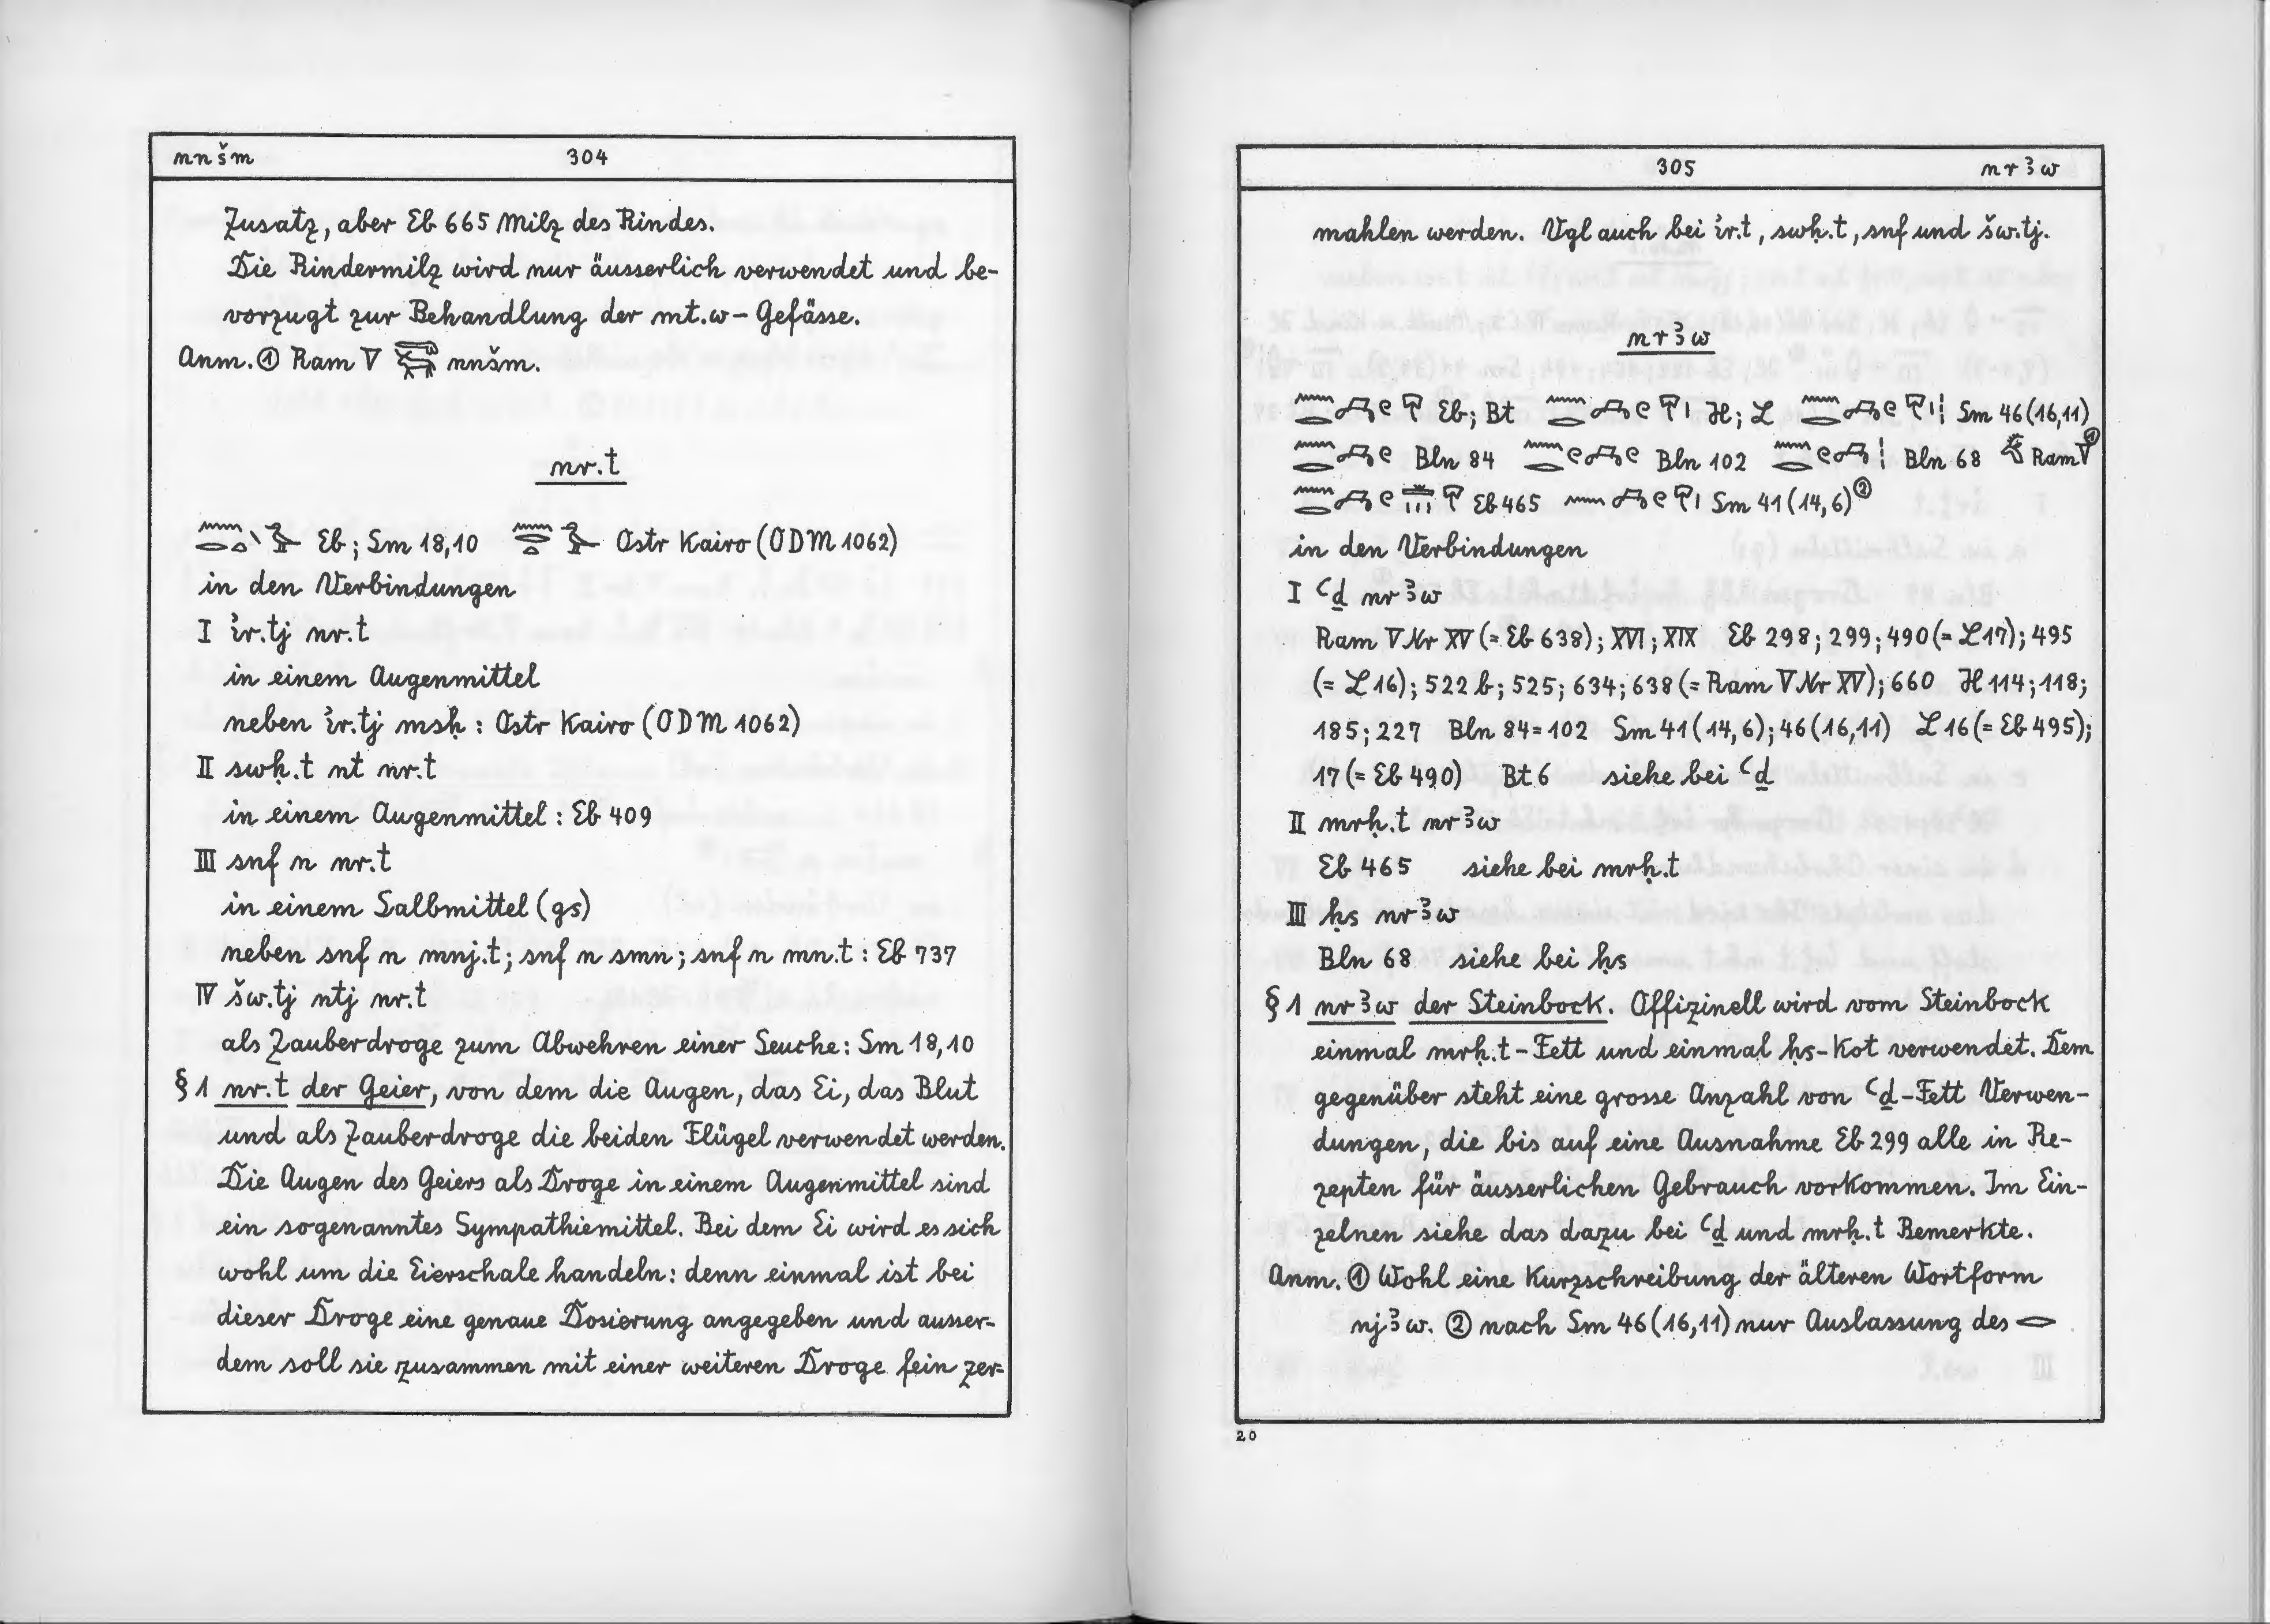 nnšm 304
Zusatz, aber Eb 665 Milz des Rindes.
Die Rindermilz wird nur äusserlich verwendet und be-
vorzugt zur Behandlung der mt.w-Gefässe.
Anm. ① Ram V nnšm.
nr.t
Eb; Sm 18,10 Ostr Kairo (ODM 1062)
in den Verbindungen
I i҆r.tj nr.t
in einem Augenmittel
neben i҆r.tj msḥ : Ostr Kairo (ODM 1062)
II swḥ.t nt nr.t
in einem Augenmittel : Eb 409
III snf n nr.t
in einem Salbmittel (gs)
neben snf n mnj.t; snf n smn; snf n mn.t : Eb 737
IV šw.tj ntj nr.t
als Zauberdroge zum Abwehren einer Seuche: Sm 18,10
§ 1 nr.t der Geier, von dem die Augen, das Ei, das Blut
und als Zauberdroge die beiden Flügel verwendet werden.
Die Augen des Geiers als Droge in einem Augenmittel sind
ein sogenanntes Sympathiemittel. Bei dem Ei wird es sich
wohl um die Eierschale handeln: denn einmal ist bei
dieser Droge eine genaue Dosierung angegeben und ausser-
dem soll sie zusammen mit einer weiteren Droge fein zer-
305 nrꜣw
mahlen werden. Vgl auch bei i҆r.t, swḥ.t, snf und šw.tj.
nrꜣw
Eb; Bt H; L Sm 46 (16,11)
Bln 84 Bln 102 Bln 68 Ram V ①
Eb 465 Sm 41 (14,6) ②
in den Verbindungen
I ꜥḏ nrꜣw
Ram V Nr XV (= Eb 638); XVI; XIX Eb 298; 299; 490 (= L 17); 495
(= L 16); 522 b; 525; 634; 638 (= Ram V Nr XV); 660 H 114; 118;
185; 227 Bln 84=102 Sm 41 (14,6); 46 (16,11) L 16 (= Eb 495);
17 (= Eb 490) Bt 6 siehe bei ꜥḏ
II mrḥ.t nrꜣw
Eb 465 siehe bei mrḥ.t
III ḥs nrꜣw
Bln 68 siehe bei ḥs
§ 1 nrꜣw der Steinbock. Offizinell wird vom Steinbock
einmal mrḥ.t-Fett und einmal ḥs-Kot verwendet. Dem
gegenüber steht eine grosse Anzahl von ꜥḏ-Fett Verwen-
dungen, die bis auf eine Ausnahme Eb 299 alle in Re-
zepten für äusserlichen Gebrauch vorkommen. Im Ein-
zelnen siehe das dazu bei ꜥḏ und mrḥ.t Bemerkte.
Anm. ① Wohl eine Kurzschreibung der älteren Wortform
njꜣw. ② nach Sm 46 (16,11) nur Auslassung des 𓂋
20